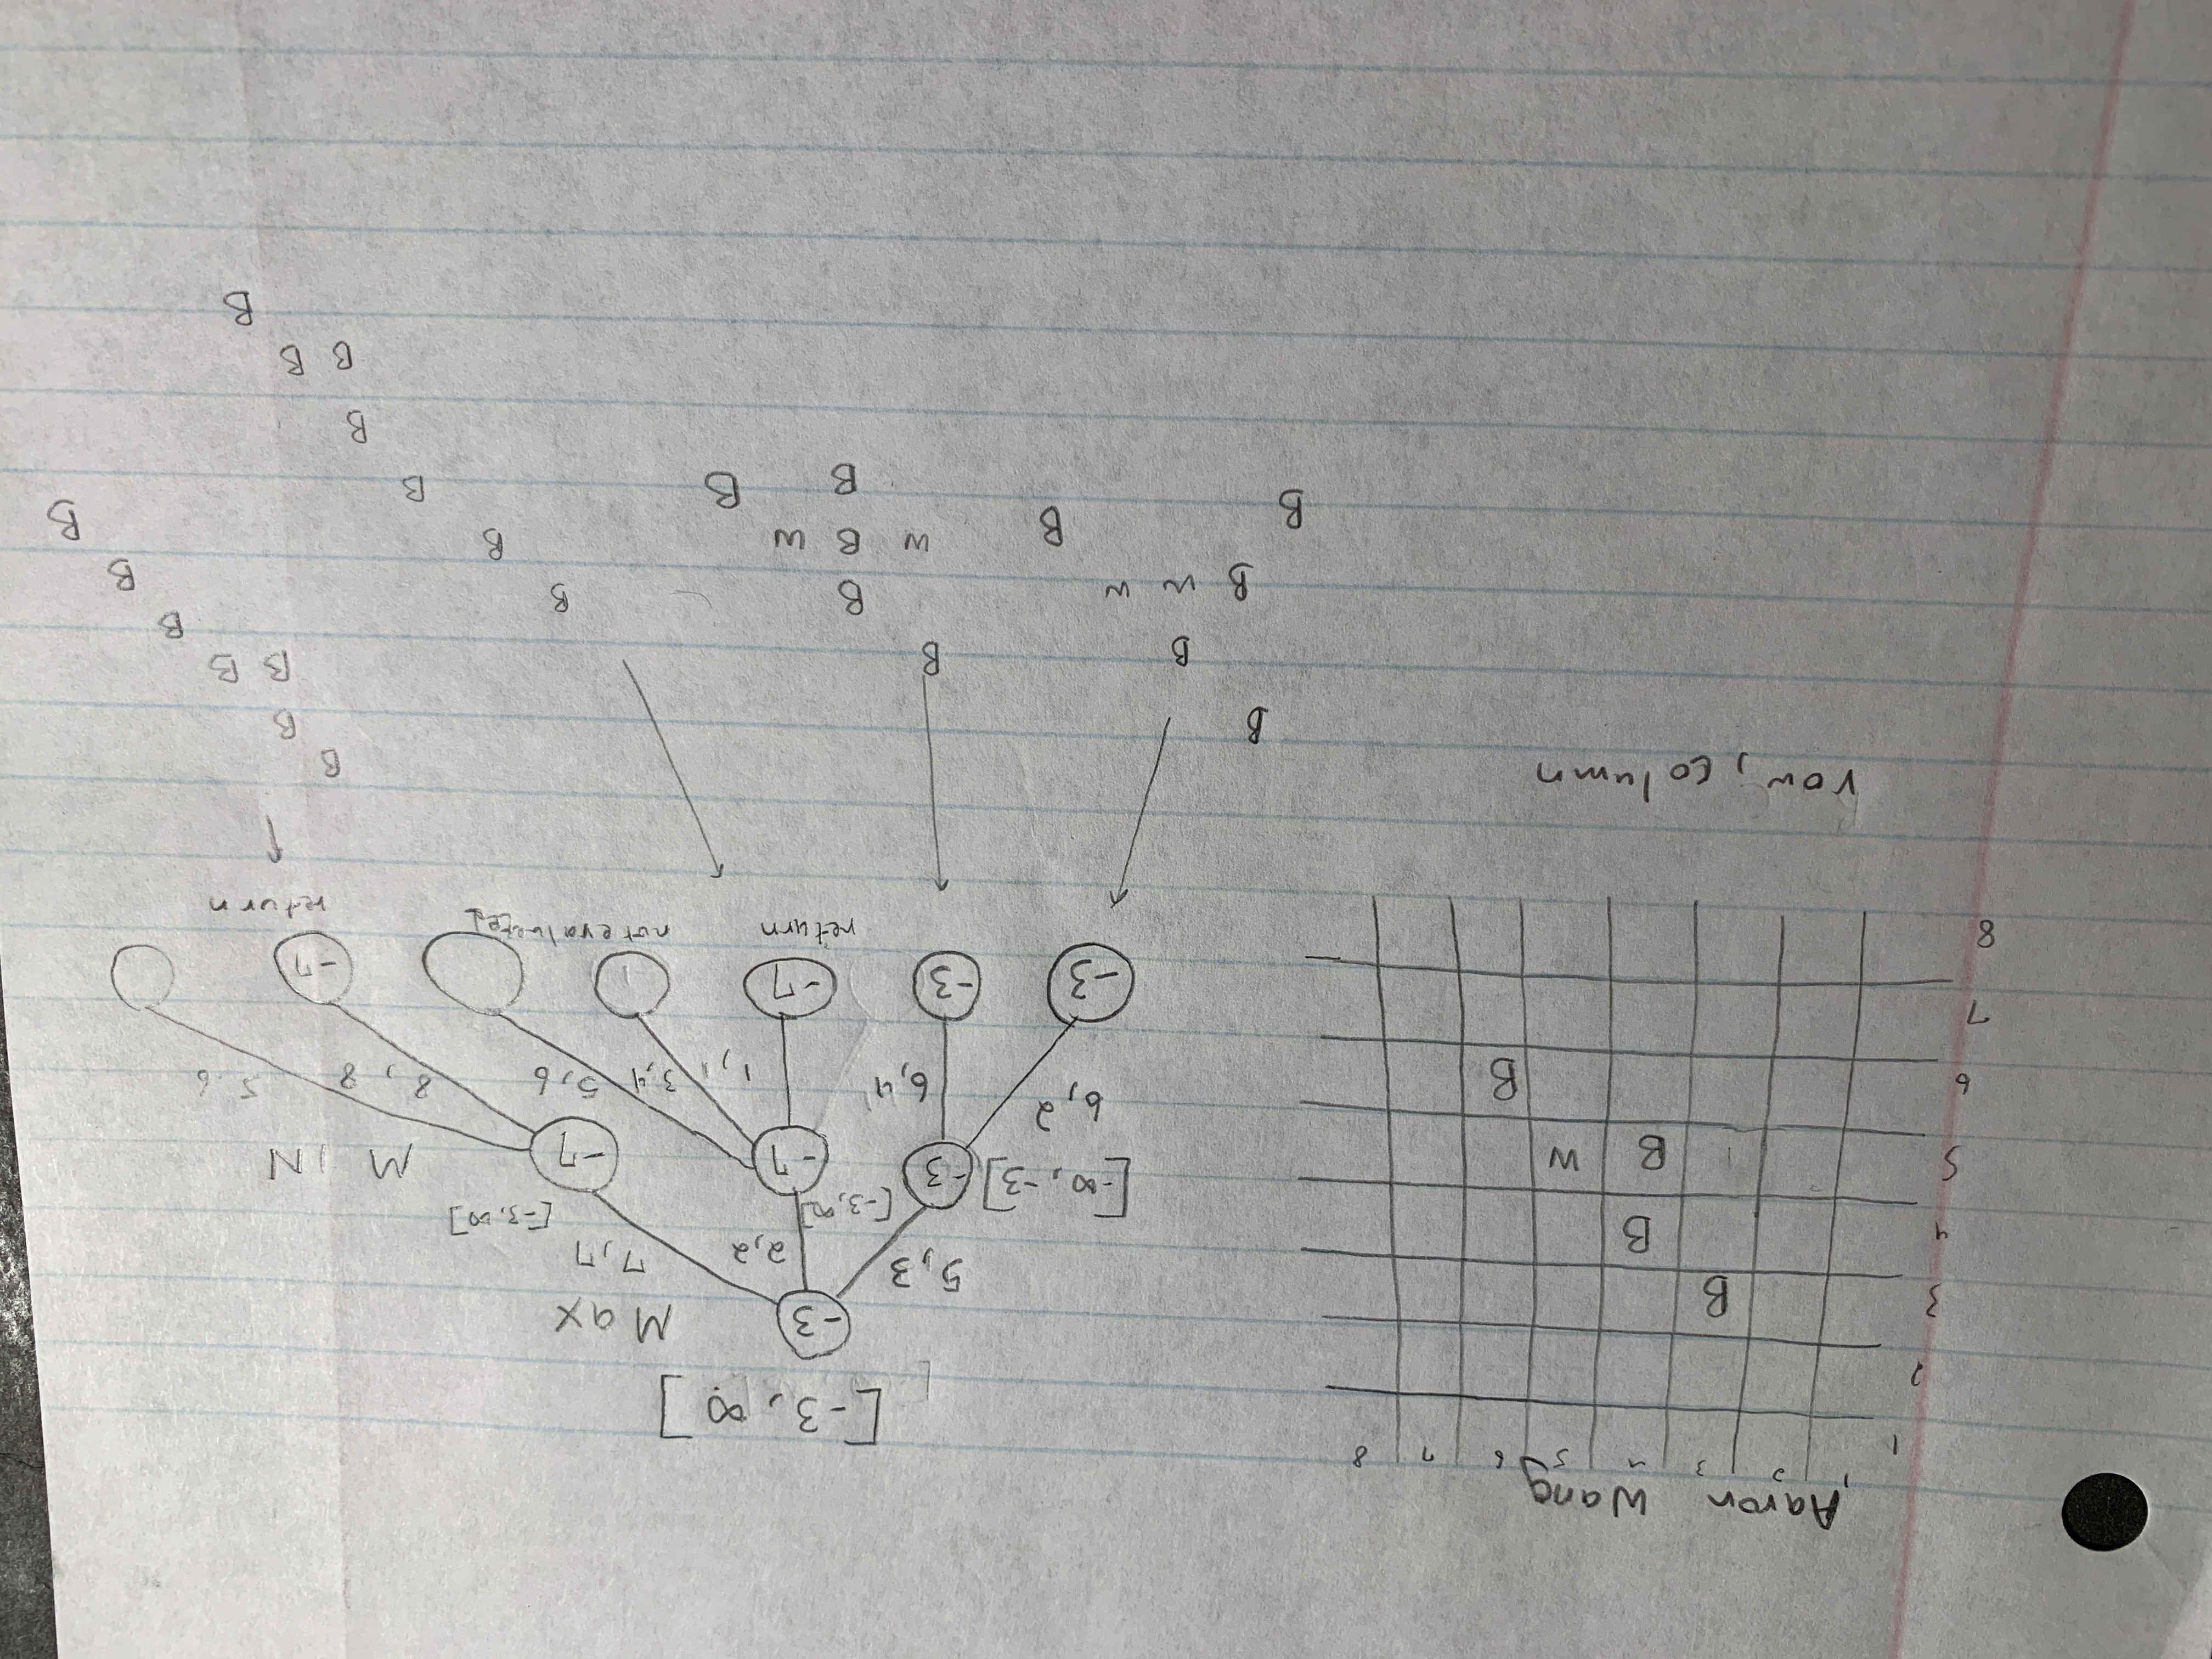 Aaron Wang
1 2 3 4 5 6 7 8
1
2
3 B
4 B
5 B W
6 B
7
8
row, column
[-3, ∞]
-3 Max
5,3 2,2 7,7
[-∞, -3] -3 [-3, ∞] -7 -7 [-3, ∞] MIN
6,2 6,4 1,1 3,4 5,6 8,8 5,6
-3 -3 -7 -7
return not evaluated return
B
B
B B B
B W W B B
B B W B W B B B
B B B
B
B
B B
B